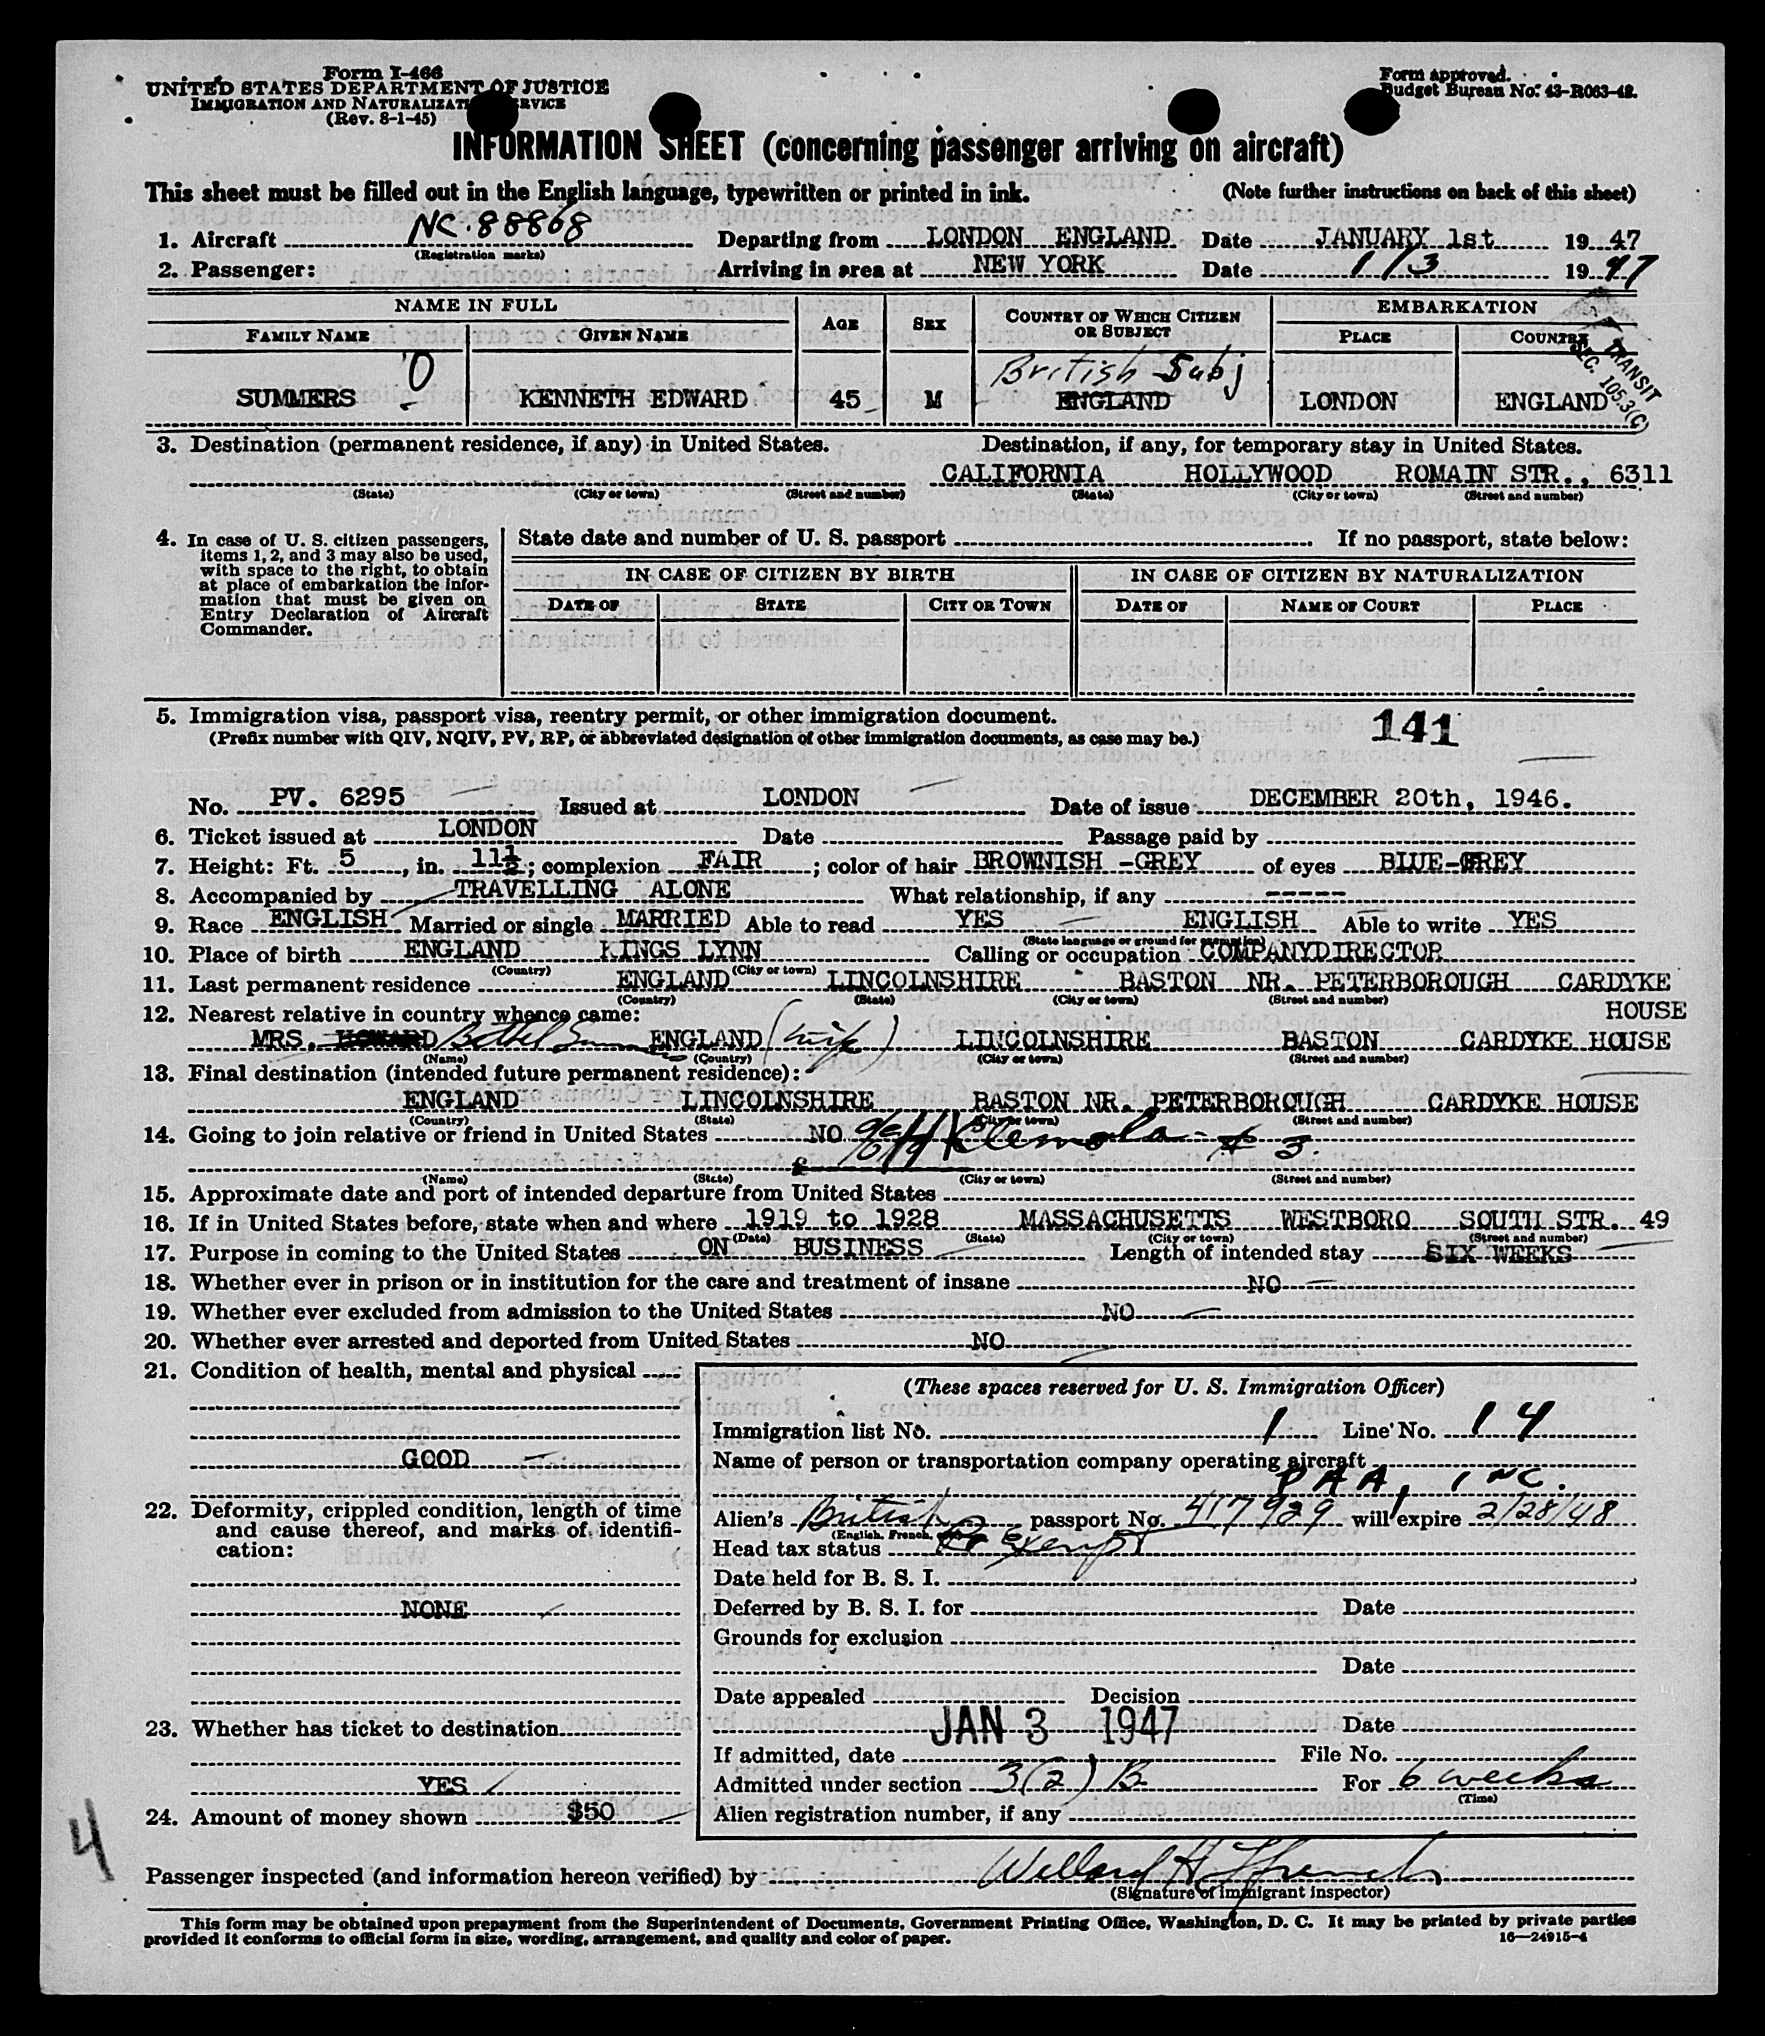 Form I-466
UNITED STATES DEPARTMENT OF JUSTICE
IMMIGRATION AND NATURALIZATION SERVICE
(Rev. 8-1-45)
Form approved.
Budget Bureau No. 43-R063-42.
INFORMATION SHEET (concerning passenger arriving on aircraft)
This sheet must be filled out in the English language, typewritten or printed in ink. (Note further instructions on back of this sheet)
1. Aircraft NC.88868 Departing from LONDON ENGLAND Date JANUARY 1st 1947
(Registration marks)
2. Passenger: Arriving in area at NEW YORK Date 1/3 1947
NAME IN FULL AGE SEX COUNTRY OF WHICH CITIZEN OR SUBJECT EMBARKATION
FAMILY NAME GIVEN NAME PLACE COUNTRY
TRANSIT
SEC. 105.3(C)
0 British Subj
SUMMERS KENNETH EDWARD 45 M ENGLAND LONDON ENGLAND
3. Destination (permanent residence, if any) in United States. Destination, if any, for temporary stay in United States.
CALIFORNIA HOLLYWOOD ROMAIN STR., 6311
(State) (City or town) (Street and number) (State) (City or town) (Street and number)
4. In case of U. S. citizen passengers, items 1, 2, and 3 may also be used, with space to the right, to obtain at place of embarkation the information that must be given on Entry Declaration of Aircraft Commander.
State date and number of U. S. passport If no passport, state below:
IN CASE OF CITIZEN BY BIRTH IN CASE OF CITIZEN BY NATURALIZATION
DATE OF STATE CITY OR TOWN DATE OF NAME OF COURT PLACE
5. Immigration visa, passport visa, reentry permit, or other immigration document. 141
(Prefix number with QIV, NQIV, PV, RP, or abbreviated designation of other immigration documents, as case may be.)
No. PV. 6295 Issued at LONDON Date of issue DECEMBER 20th, 1946.
6. Ticket issued at LONDON Date Passage paid by
7. Height: Ft. 5, in. 11½; complexion FAIR; color of hair BROWNISH -GREY of eyes BLUE-GREY
8. Accompanied by TRAVELLING ALONE What relationship, if any -----
9. Race ENGLISH Married or single MARRIED Able to read YES ENGLISH Able to write YES
(State language or ground for exemption)
10. Place of birth ENGLAND KINGS LYNN Calling or occupation COMPANYDIRECTOR
(Country) (City or town)
11. Last permanent residence ENGLAND LINCOLNSHIRE BASTON NR. PETERBOROUGH CARDYKE HOUSE
(Country) (State) (City or town) (Street and number)
12. Nearest relative in country whence came:
MRS. HOWARD Bethel ENGLAND (wife) LINCOLNSHIRE BASTON CARDYKE HOUSE
(Name) (Country) (City or town) (Street and number)
13. Final destination (intended future permanent residence):
ENGLAND LINCOLNSHIRE BASTON NR. PETERBOROUGH CARDYKE HOUSE
(Country) (State) (City or town) (Street and number)
14. Going to join relative or friend in United States NO
(Name) (State) (City or town) (Street and number)
15. Approximate date and port of intended departure from United States
16. If in United States before, state when and where 1919 to 1928 MASSACHUSETTS WESTBORO SOUTH STR. 49
(Date) (State) (City or town) (Street and number)
17. Purpose in coming to the United States ON BUSINESS Length of intended stay SIX WEEKS
18. Whether ever in prison or in institution for the care and treatment of insane NO
19. Whether ever excluded from admission to the United States NO
20. Whether ever arrested and deported from United States NO
21. Condition of health, mental and physical
GOOD
22. Deformity, crippled condition, length of time and cause thereof, and marks of identification:
NONE
23. Whether has ticket to destination
YES
24. Amount of money shown $50
(These spaces reserved for U. S. Immigration Officer)
Immigration list No. 1 Line No. 14
Name of person or transportation company operating aircraft
PAA, INC.
Alien's British passport No. 417929 will expire 2/28/48
(English, French, etc.)
Head tax status Exempt
Date held for B. S. I.
Deferred by B. S. I. for Date
Grounds for exclusion
Date
Date appealed Decision
JAN 3 1947 Date
If admitted, date File No.
Admitted under section 3(2)B For 6 weeks
(Time)
Alien registration number, if any
4
Passenger inspected (and information hereon verified) by Willard H. French
(Signature of immigrant inspector)
This form may be obtained upon prepayment from the Superintendent of Documents, Government Printing Office, Washington, D. C. It may be printed by private parties
provided it conforms to official form in size, wording, arrangement, and quality and color of paper. 16—24915-4